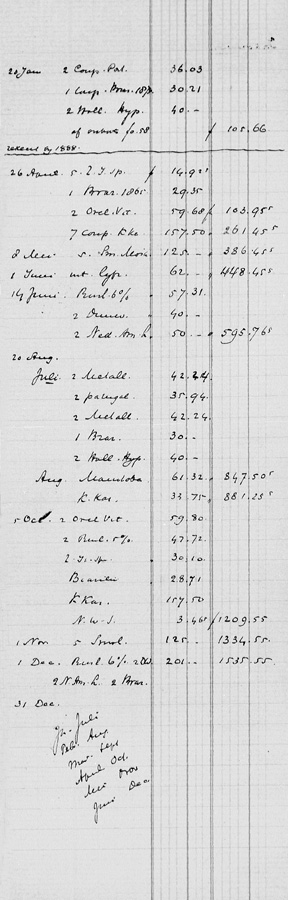 20 Jan 2 Coup. Pol. 36.03
1 Coup. Braz. 30.21
2 Holl. Hyp. 40.-
f 0.58 f 105.66
rekening 1888.
26 April 5. 14.92⁵
1 Braz. 1865 29.35
2 Orel. Vit. 59.68 f 103.95⁵
7 Coup. K Ke 157.50 261.45⁵
8 Mei 5. 125 - 386.45⁵
1 Juni Hyp. 62.- 448.45⁵
14 Juni Rusl. 6% 57.31
2 40.-
2 Ned. Am. h. 50 - 595.76⁵
20 Aug.
Juli 2 Metall 42.24
2 Portugal 35.94
2 Metall 42.24
1 Braz. 30.-
2 Holl. Hyp. 40.-
Aug. Manitoba 61.32 847.50⁵
K. Kas. 33.75 881.25⁵
5 Oct. 2 Orel Vit. 59.80
2 Rusl. 5% 47.72
30.10
Brazilie 28.71
K Kas. 157.50
N.W.S. 3.46⁵ f 1209.55
1 Nov 5 125 - 1334.55
1 Dec. Rusl. 6% 201.- 1535.55
2 N. Am. h. 2 Braz.
31 Dec.
Jan. Juli
Feb. Aug
Mrt. Sept
April Oct.
Mei Nov
Juni Dec